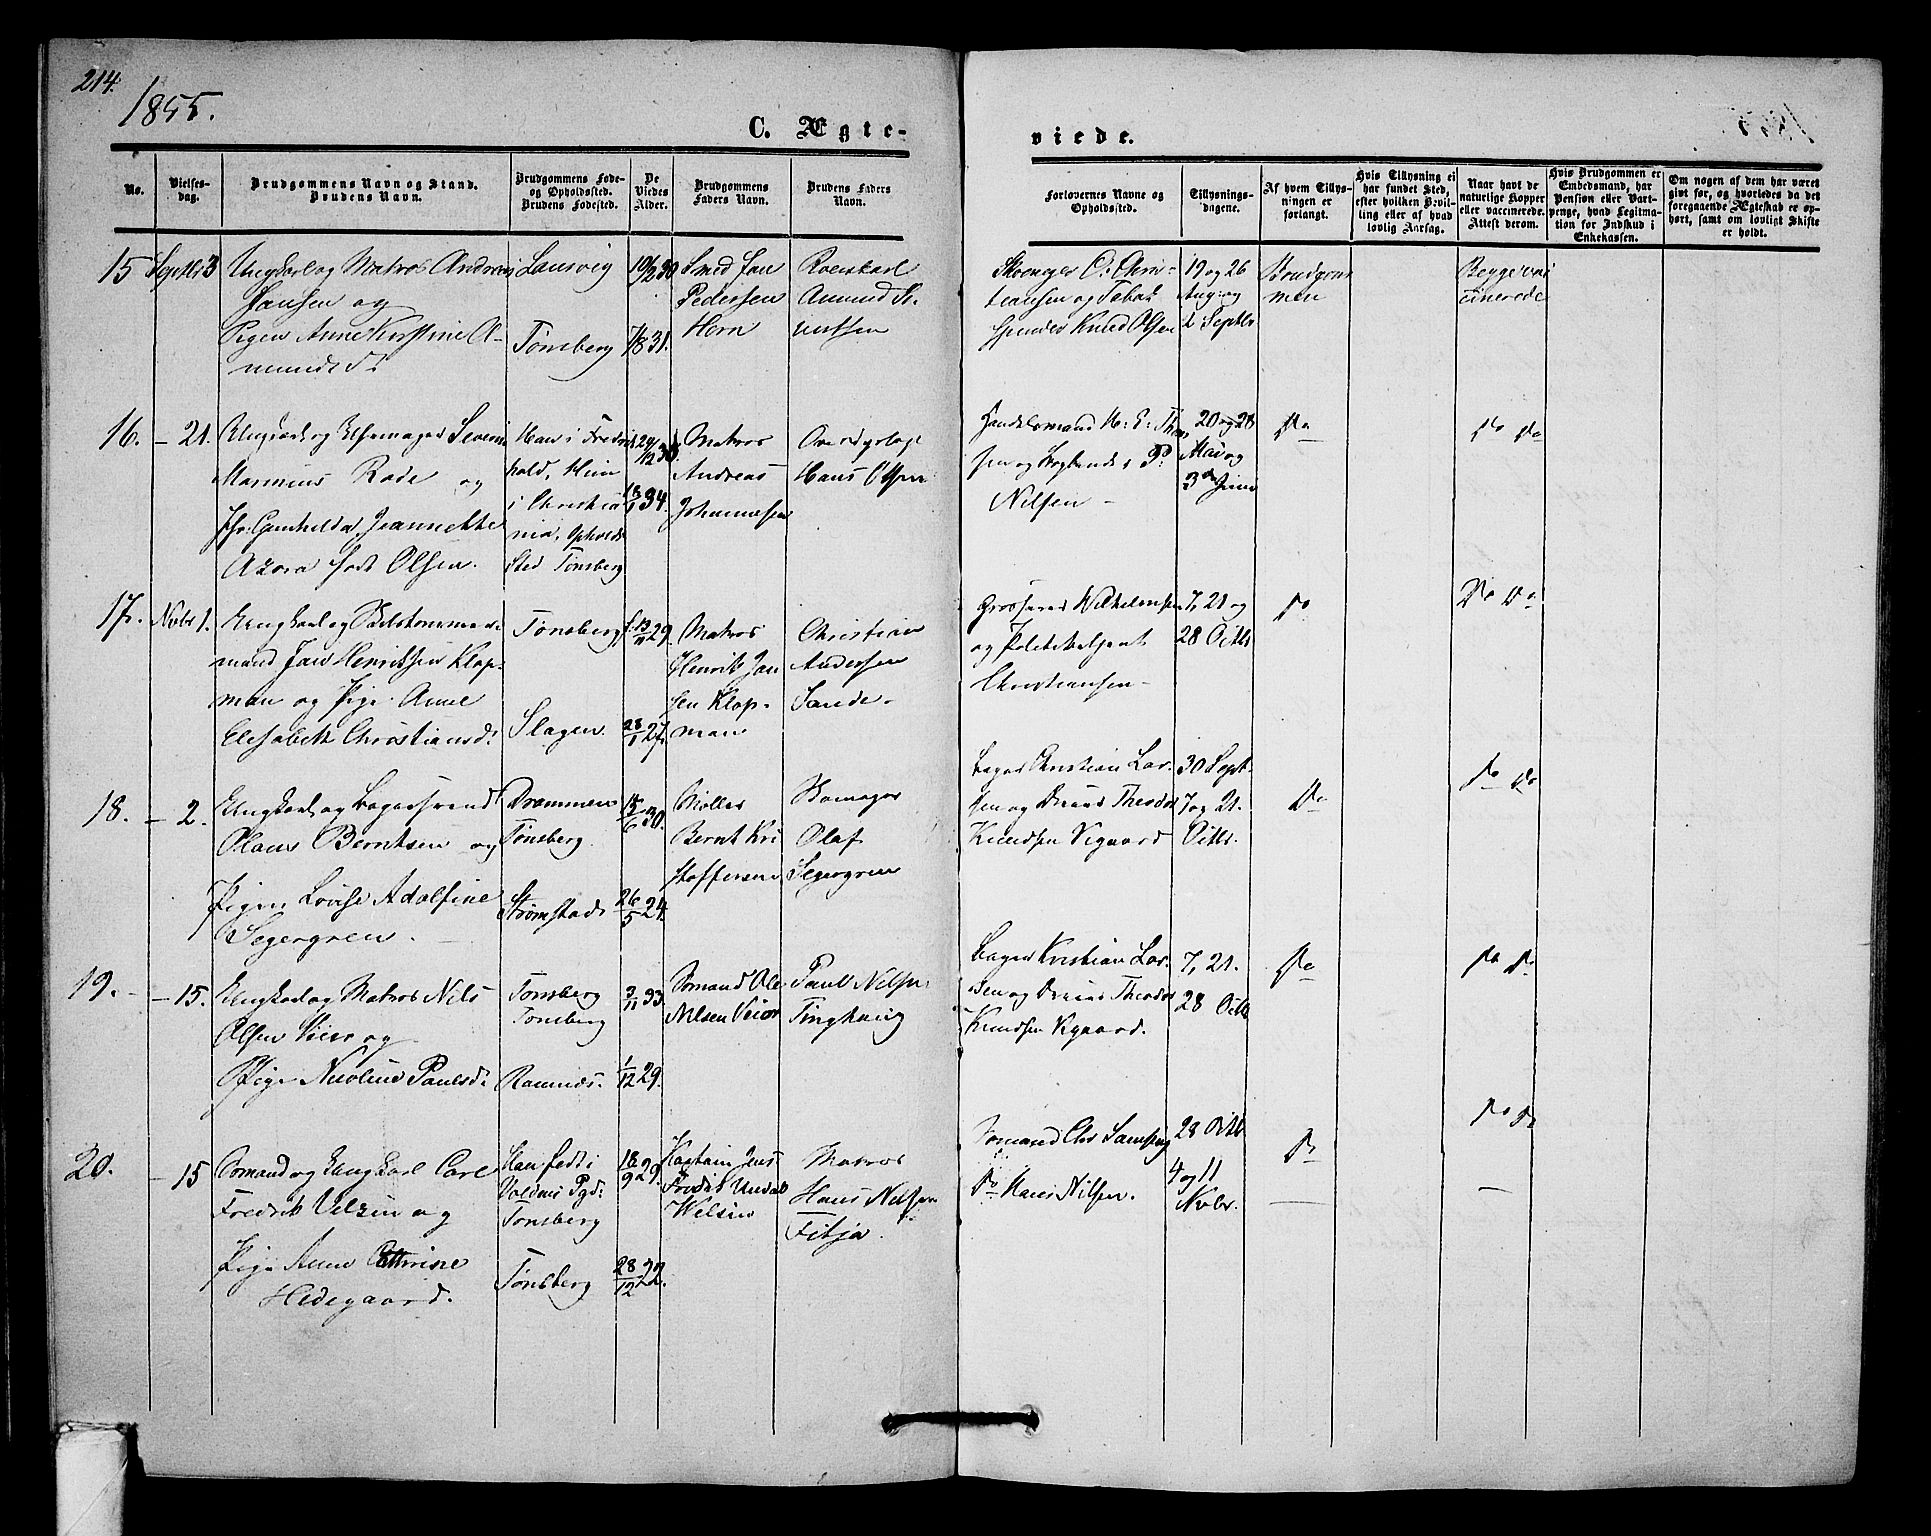 214.
1855.
C. Ægte-
viede.
No.
Vielses-
dag.
Brudgommens Navn og Stand.
Brudens Navn.
Brudgommens Føde-
og Opholdssted.
Brudens Fødested.
De
Viedes
Alder.
Brudgommens
Faders Navn.
Brudens Faders
Navn.
Forlovernes Navne og
Opholdssted.
Tillysnings-
dagene.
Af hvem Tillys-
ningen er
forlangt.
Hvis Tillysning ei
har fundet Sted,
efter hvilken Bevil-
ling eller af hvad
lovlig Aarsag.
Naar havt de
naturlige Kopper
eller vaccinerede.
Attest derom.
Hvis Brudgommen er
Embedsmand, har
Pension eller Vart-
penge, hvad Legitma-
tion for Indskud i
Enkekassen.
Om nogen af dem har været
givt før, og hvorledes da det
foregaaende Ægteskab er op-
hørt, samt om lovligt Skifte
er holdt.
15 Septbr 3
Ungkarl og Matros Andreas
Hansen og
Pigen Anne Kirstine A-
mundsd.
Laurvig
Tønsberg
10/2 30
7/8 31.
Smed Jan
Pedersen
Horn
Amund
19 og 26
Aug: og
2 Septbr
Brudgom
men
Begge vac
cinerede
Knud Olsen
16. - 21.
Ungkarl og Severin
Marinius Rode og
Jfr: Gunhilda Jeannette
Azora født Olsen.
Han i Fredrik
hald, Hun
i Christia
nia, Opholds
Sted Tønsberg
18/1 34.
Matros
Andreas
Johannesen
Hans Olsen
Handelsmand
Nilsen -
20 og 28
Mai og
3de Juni
Do
Do Do
17. Novbr 1.
Ungkarl og
mand Jan Henriksen Klop-
man og Pige Anne
Elisabeth Christiansd.
Tønsberg
Slagen
29.
28/1 27.
Matros
Henrik Jan
sen Klop-
man
Christian
Andersen
Sande -
Wilhelmsen
og Politibetjent
Christiansen -
7, 21 og
28 Octbr
Do
Do Do
18. - 2.
Ungkarl og Bagersvend
Olaus Berntsen og
Pigen Lovise Adolfine
Segergren. -
Drammen
Tønsberg
Strømstad
15/6 30.
26/5 24.
Møller
Bernt Kri
stoffersen
Skomager
Olaf
Segergren
Bager Christian Lar-
sen og Theodor
Knudsen Vegaard
30 Sept.
7 og 21.
Octbr.
Do
Do Do
19. - 15.
Ungkarl og Matros Nils
Olsen Veier og
Pige Nicoline Paulsd.
Tønsberg
Tønsberg
Ramnes.
3/11 33.
1/12 29.
Sømand Ole
Nilsen Veier
Paul Nilsen
Tinghaug
Bager Kristian Lar-
sen og Theodor
Knudsen Vegaard.
7, 21.
28 Octb
Do
Do Do
20. - 15
Sømand og Ungkarl Carl
Fredrik Velzin og
Pige Anne Cathrine
Hedegaard.
Han født i
Tønsberg
Tønsberg
18/9 29.
28/12 22.
Kaptain Jens
Fredrik
Matros
Hans Nilsen
Fitjo.
Sømand Chr
Do Hans Nilsen.
28 Octb
4 og 11
Novbr.
Do
Do Do